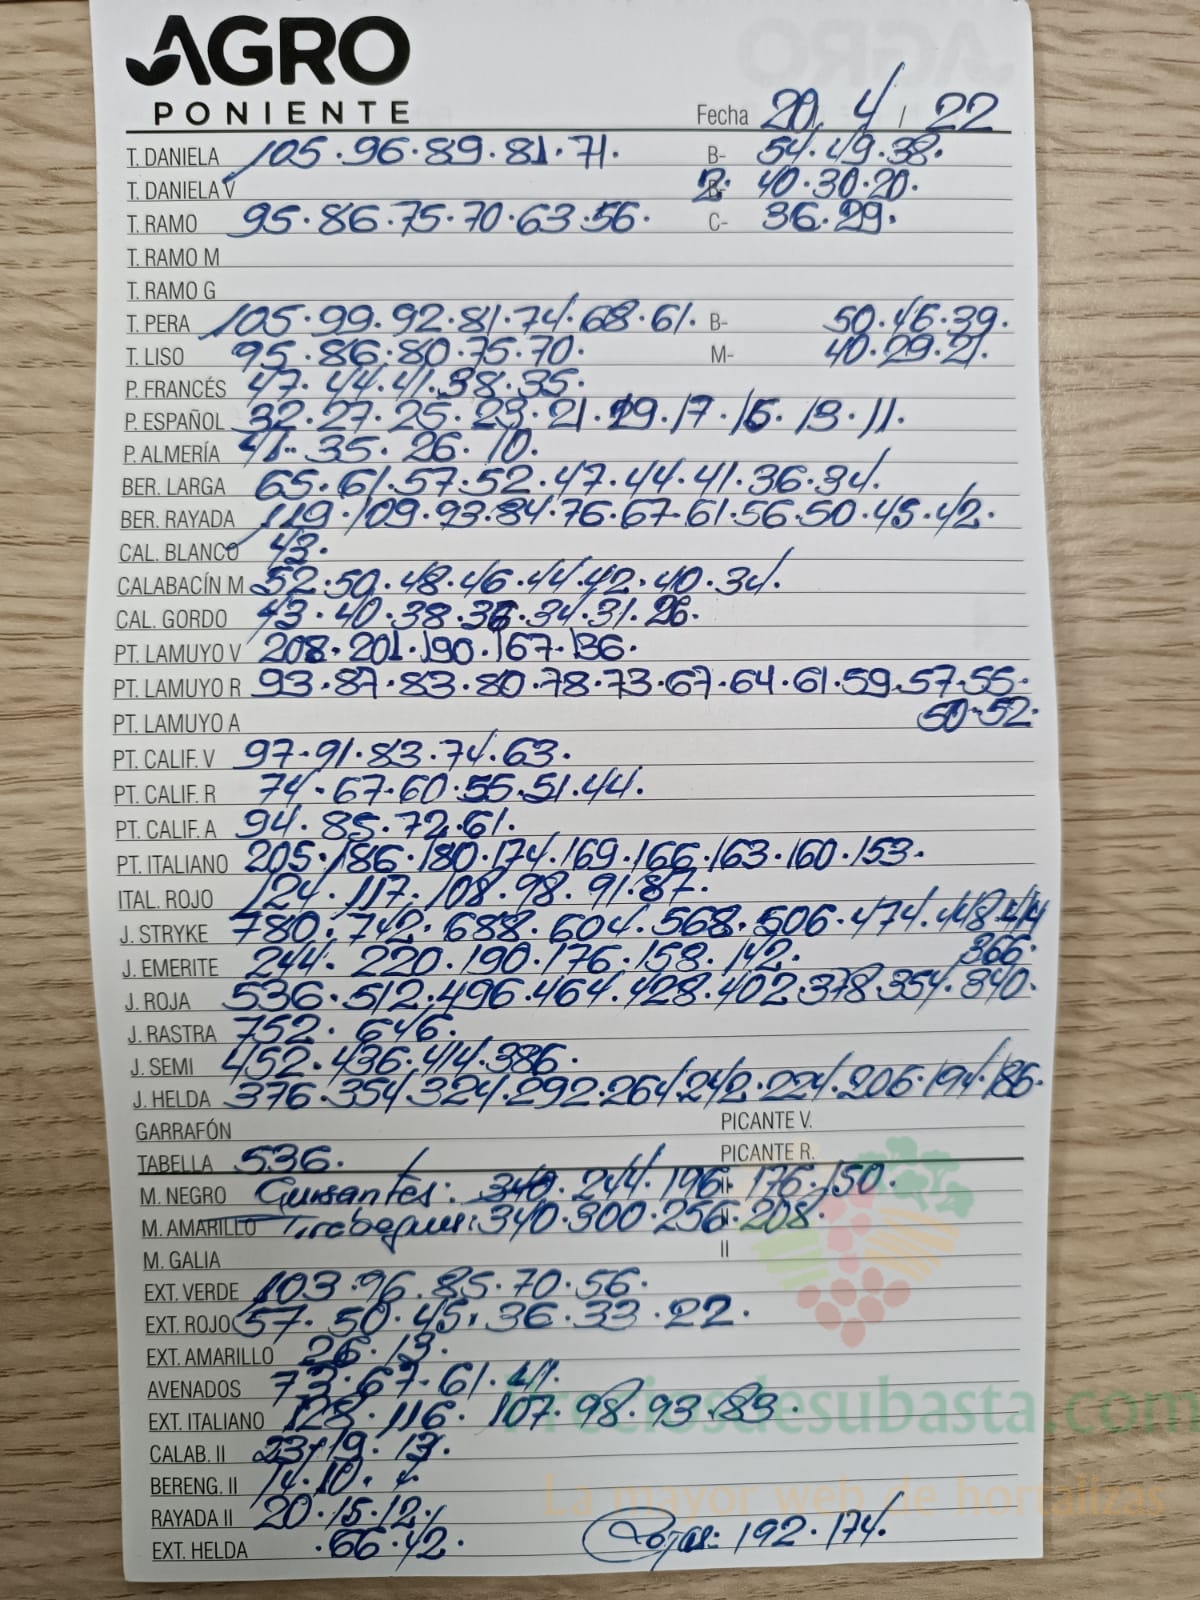 AGRO
PONIENTE
Fecha 20 / 4 / 22
T. DANIELA 105.96.89.81.71. B- 54.49.38.
T. DANIELA V 2. 40.30.20.
T. RAMO 95.86.75.70.63.56. C- 36.29.
T. RAMO M
T. RAMO G
T. PERA 105.99.92.81.74.68.61. B- 50.46.39.
T. LISO 95.86.80.75.70. M- 40.29.21.
P. FRANCÉS 47.44.41.38.35.
P. ESPAÑOL 32.27.25.23.21.19.17.16.13.11.
P. ALMERÍA 41.35.26.10.
BER. LARGA 65.61.57.52.47.44.41.36.34.
BER. RAYADA 119.109.93.84.76.67.61.56.50.45.42.
CAL. BLANCO 43.
CALABACÍN M 52.50.48.46.44.42.40.34.
CAL. GORDO 43.40.38.36.34.31.26.
PT. LAMUYO V 208.201.190.167.136.
PT. LAMUYO R 93.87.83.80.78.73.67.64.61.59.57.55.
PT. LAMUYO A 50.52.
PT. CALIF. V 97.91.83.74.63.
PT. CALIF. R 74.67.60.55.51.44.
PT. CALIF. A 94.85.72.61.
PT. ITALIANO 205.186.180.174.169.166.163.160.153.
ITAL. ROJO 124.117.108.98.91.87.
J. STRYKE 780.742.688.604.568.506.474.448.414
J. EMERITE 244.220.190.176.158.142. 366.
J. ROJA 536.512.496.464.428.402.378.354.340.
J. RASTRA 752.646.
J. SEMI 452.436.414.386.
J. HELDA 376.354.324.292.264.242.224.206.194.186.
GARRAFÓN PICANTE V.
TABELLA 536. PICANTE R.
M. NEGRO Guisantes: 340.244.196. II 176.150.
M. AMARILLO 340.300.256. II 208.
M. GALIA II
EXT. VERDE 103.96.85.70.56.
EXT. ROJO 57.50.45.36.33.22.
EXT. AMARILLO 26.13.
AVENADOS 73.67.61.41.
EXT. ITALIANO 128.116.107.98.93.83.
Preciosdesubasta.com
CALAB. II 23.19.13.
BERENG. II 14.10.4.
La mayor web de hortalizas
RAYADA II 20.15.12.
EXT. HELDA .66.42. Rojas: 192.174.